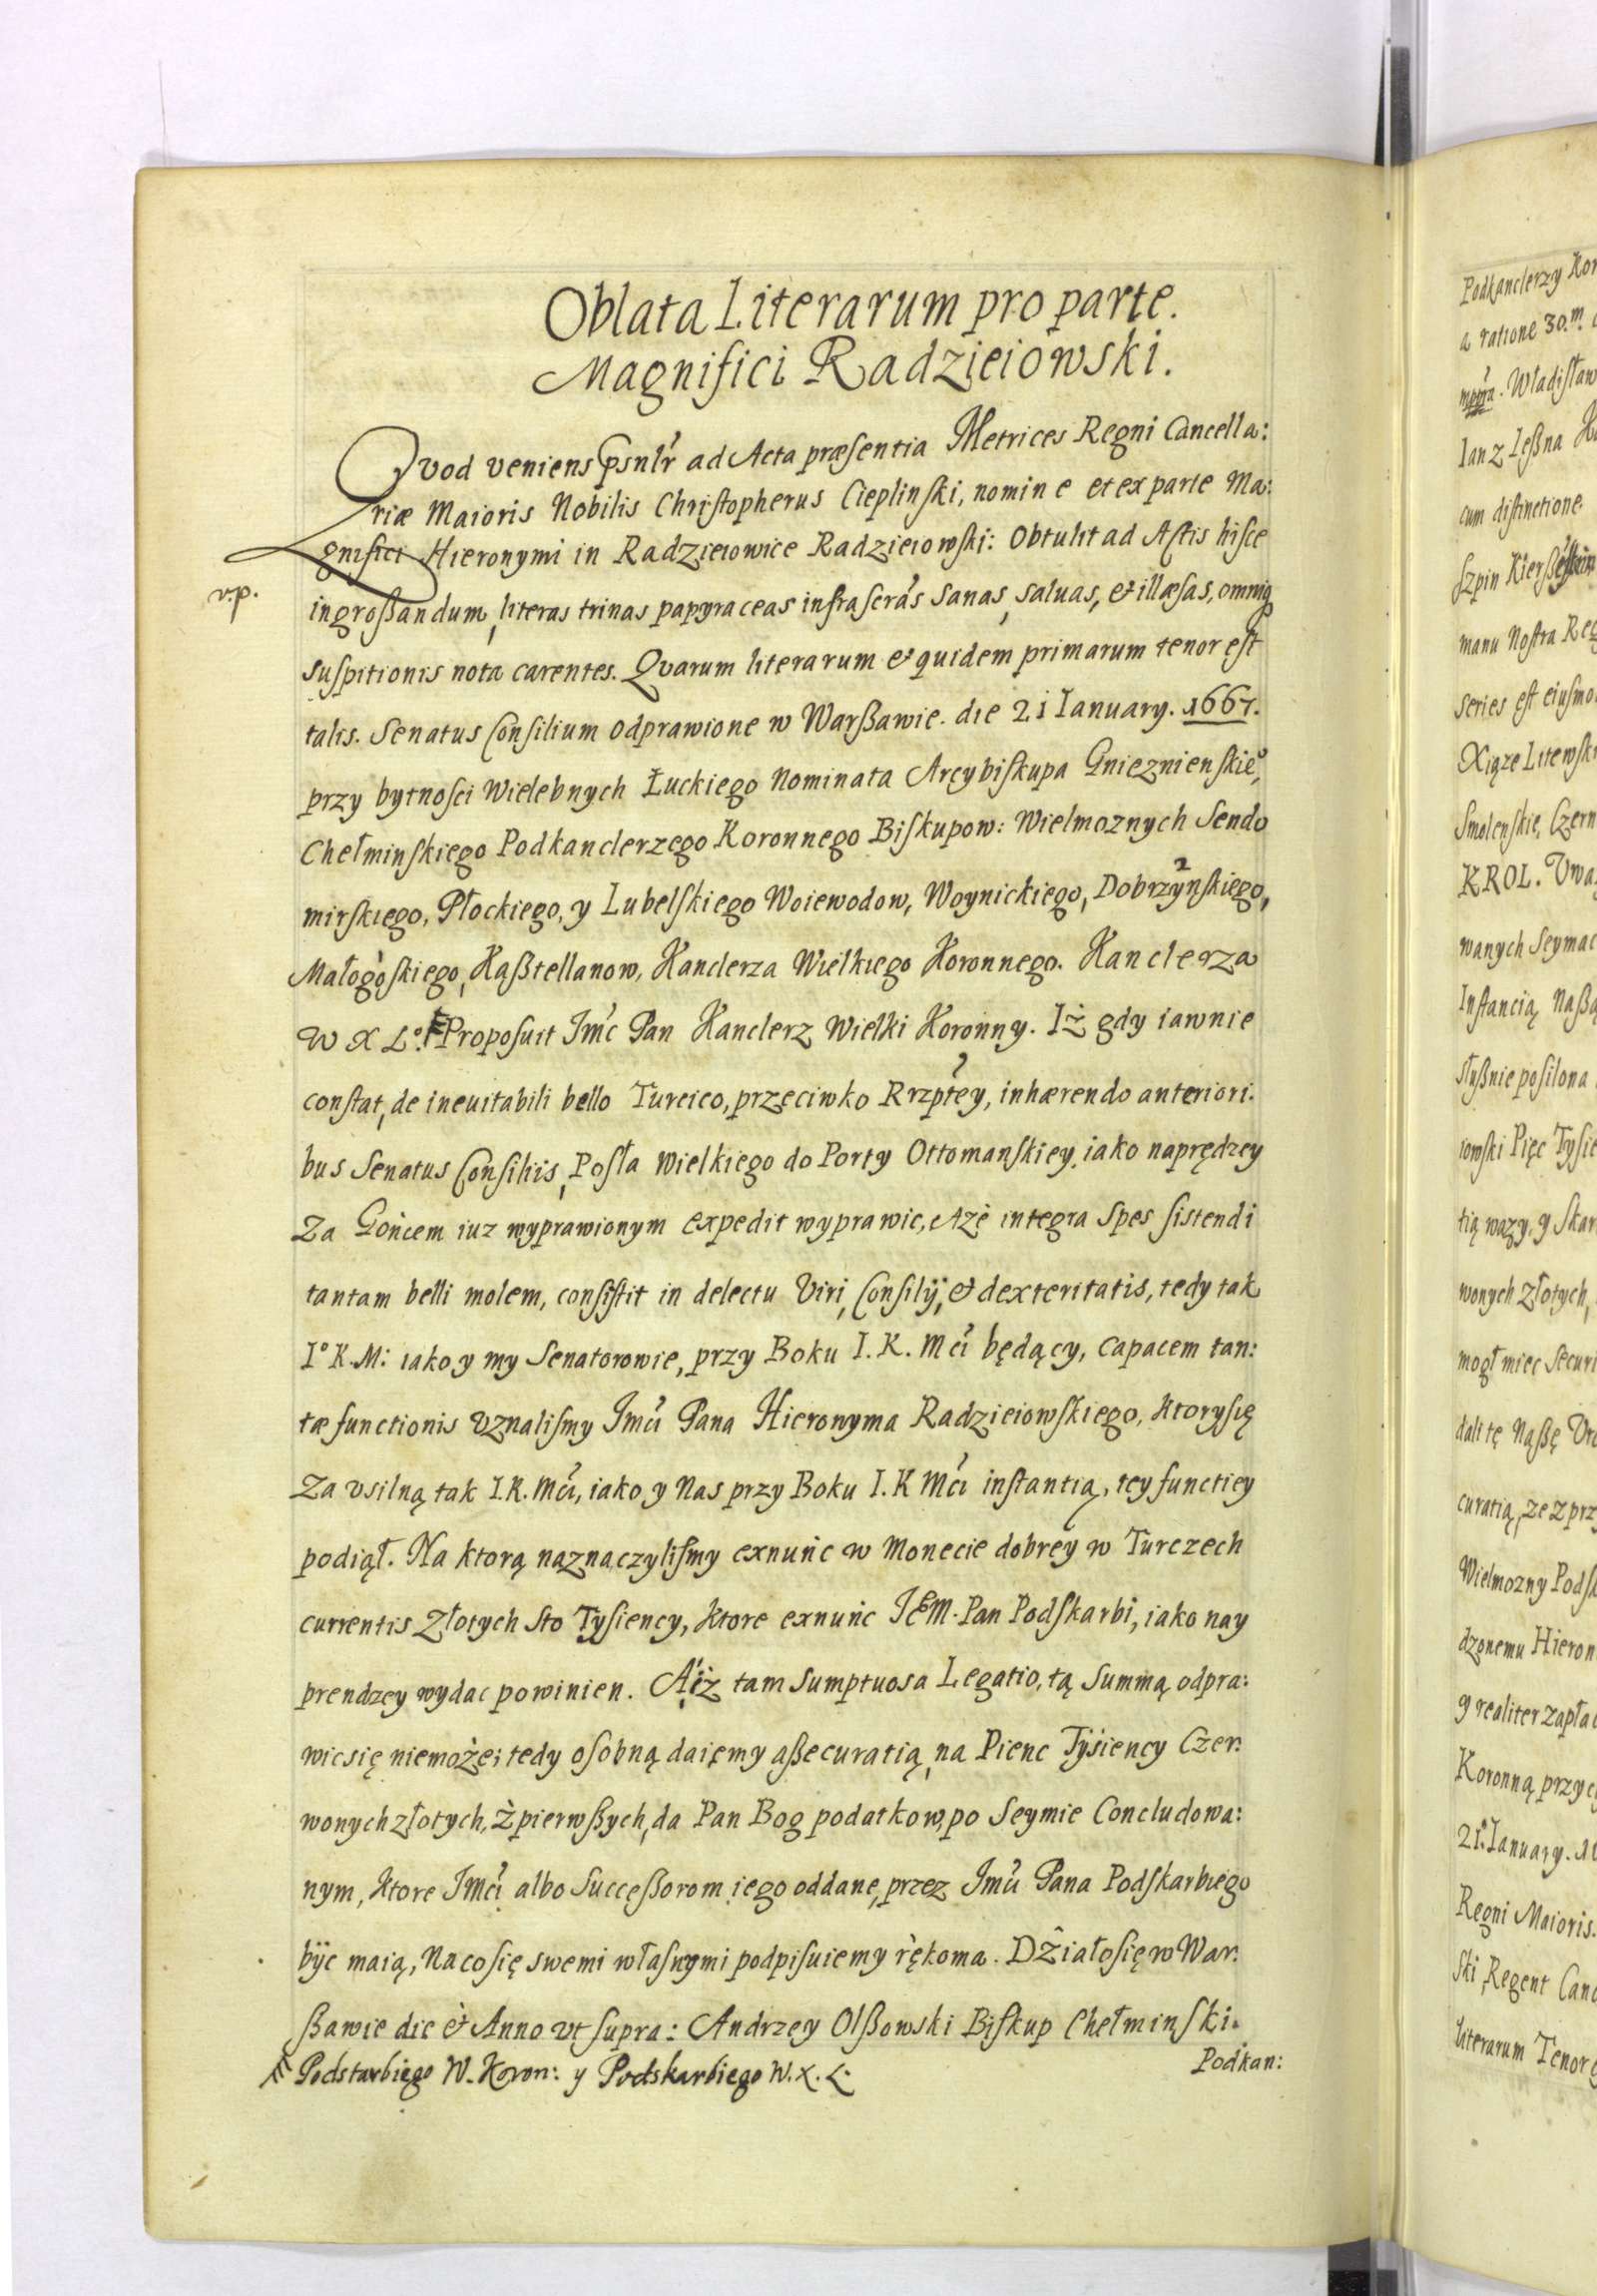 Oblata Literarum pro parte.
Magnifici Radzieiowski.
Qvod veniens psnlr ad Acta præsentia Metrices Regni Cancella:
riæ Maioris Nobilis Christopherus Cieplinski, nomine et ex parte Ma:
gnifici Hieronymi in Radzieiowice Radzieiowski: Obtulit ad Actis hisce
v.p.
ingroßandum, literas trinas papyraceas infrascrãs sanas, saluas, & illæsas, omniq
suspitionis nota carentes. Qvarum literarum & quidem primarum tenor est
talis. Senatus Consilium odprawione w Warßawie. die 21 Ianuary. 1667.
przy bytnosci Wielebnych Łuckiego Nominata Arcybiskupa Gnieznienskiẻ,
Chełminskiego Podkanclerzego Koronnego Biskupow: Wielmoznych Sendo
mirskiego, Płockiego, y Lubelskiego Woiewodow, Woynickiego, Dobrzynskiego,
Małogoskiego, Kaßtellanow, Kanclerza Wielkiego Koronnego. Kanclerza
W X L°. Proposuit Jmć Pan Kanclerz Wielki Koronny. Iż gdy iawnie
constat, de ineuitabili bello Turcico, przeciwko Rrzptey, inhærendo anteriori.
bus Senatus Consiliis, Posła wielkiego do Porty Ottomanskiey, iako naprędzey
Za Gońcem iuz wyprawionym expedit wyprawic, Azė integra spes sistendi
tantam belli molem, consistit in delectu Viri, Consilÿ, & dexteritatis, tedy tak
I° K.M: iako y my Senatorowie, przy Boku I. K. Mci będący, capacem tan:
tæ functionis vznalismy Jmci Pana Hieronyma Radzieiowskiego, ktory się
Za vsilną tak I.K. Mci, iako y Nas przy Boku I. K Mci instantią, tey functiey
podiął. Na ktorą naznaczylismy exnunc w Monecie dobrey w Turczech
currentis Złotych Sto Tysiency, ktore exnunc JEM. Pan Podskarbi, iako nay
prendzey wydac powinien. A iż tam sumptuosa Legatio, tą summą odpra:
wic się niemoże; tedy osobną daięmy aßecuratią, na Pienc Tysiency Czer:
wonych złotych, ż pierwßych, da Pan Bog podatkow, po Seymie Concludowa:
nym, ktore Jmci albo Succeßorom iego oddane, przez Jmci Pana Podskarbiego
bÿc maią, Na co się swemi własnymi podpisuiemy rękoma. Działo się w War:
ßawie die & Anno vt supra: Andrzey Olßowski Biskup Chełminski.
Podskarbiego W. Koron: y Podskarbiego W. X. L.
Podkan:
Podkanclerzy
a ratione 30.m.
Władisław
Ian z Leßna
cum distinctione
Szpin
manu Nostra
series est
Xiąze Litewski
Smolenskie,
KROL.
wanych Seymac
Instancią Naßą
słußnie posilona
iowski Pięc
tią wazy, y
wonych złotych,
mogł miec
dali tę Naßę
curatią, ze z
Wielmozny
dzonemu Hieron
y realiter
Koronną
21. Ianuary.
Regni Maioris.
ski, Regent
literarum Tenor